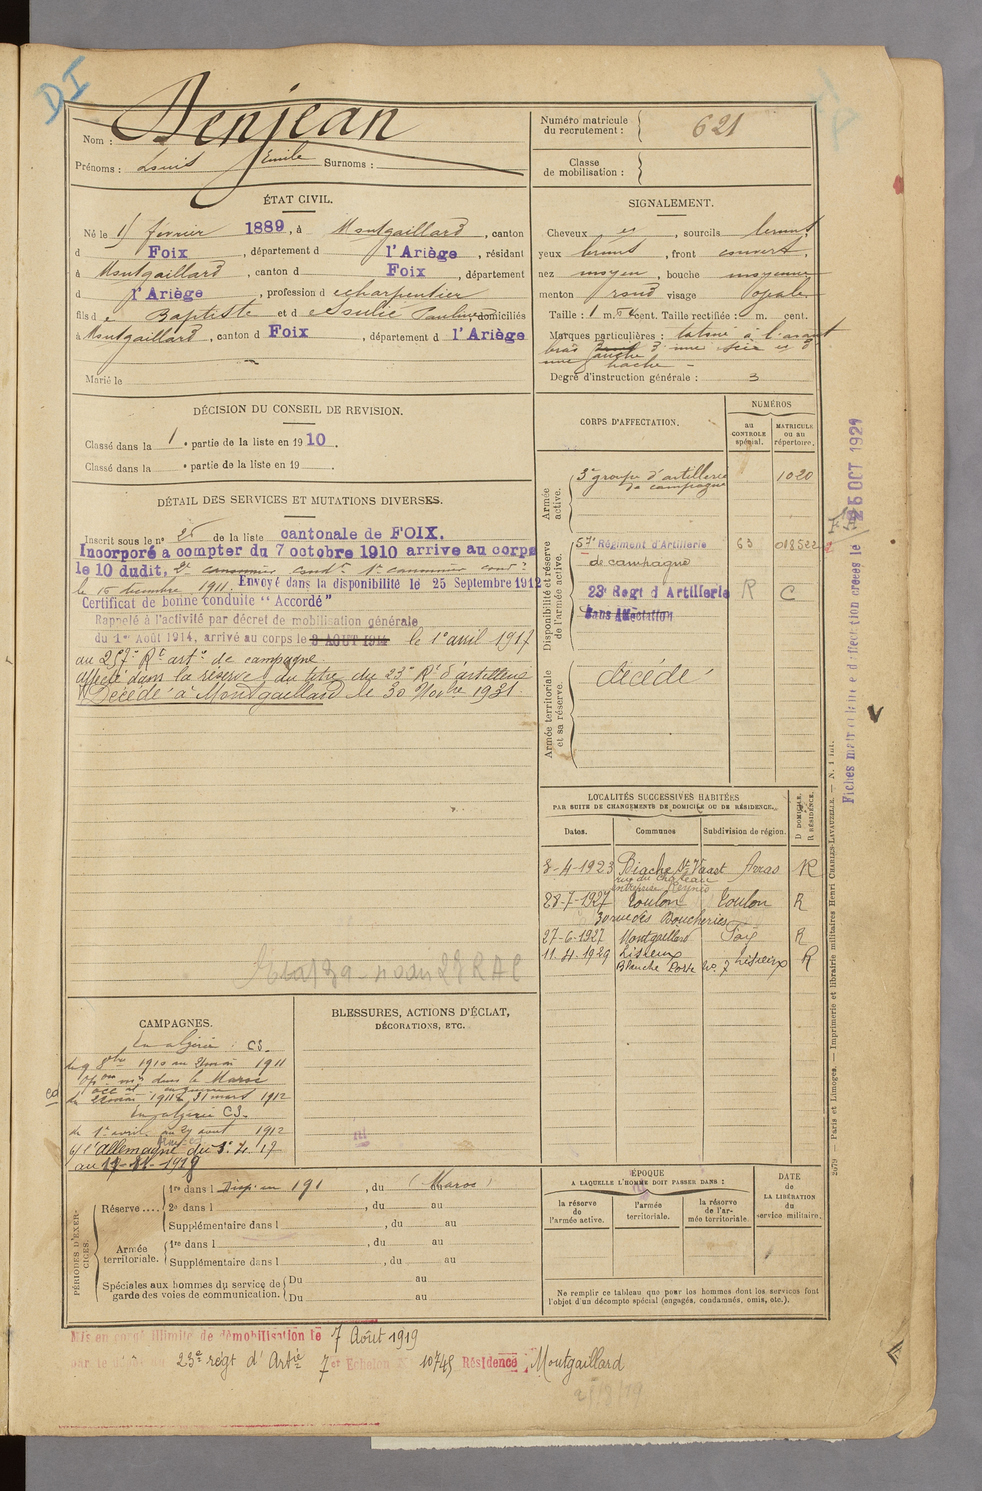 DI
Nom : Denjean
Prénoms : Louis Emile Surnoms :
Numéro matricule du recrutement : 621
Classe de mobilisation :
ÉTAT CIVIL.
Né le 15 février 1889, à Montgaillard, canton
d Foix, département d l'Ariège, résidant
à Montgaillard, canton d Foix, département
d l'Ariège, profession d charpentier
fils d e Baptiste et d e Soulié Pauline, domiciliés
à Montgaillard, canton d Foix, département d l'Ariège
Marié le
SIGNALEMENT.
Cheveux et, sourcils bruns,
yeux bruns, front couvert,
nez moyen, bouche moyenne
menton rond visage ovale
Taille : 1 m. cent. Taille rectifiée : m. cent.
Marques particulières : tatoué à l'avant
bras gauche une scie et
une hache -
Degré d'instruction générale : 3
DÉCISION DU CONSEIL DE REVISION.
Classé dans la 1 e partie de la liste en 1910.
Classé dans la e partie de la liste en 19 .
DÉTAIL DES SERVICES ET MUTATIONS DIVERSES.
Inscrit sous le n° 25 de la liste cantonale de FOIX.
Incorporé a compter du 7 octobre 1910 arrive au corps
le 10 dudit, 2e canonnier condr 1er canonnier condr
le 16 décembre 1911. Envoyé dans la disponibilité le 25 Septembre 1912
Certificat de bonne conduite "Accordé"
Rappelé à l'activité par décret de mobilisation générale
du 1er Août 1914, arrivé au corps le 3 AOUT 1914 le 1er avril 1917
au 257e Rt artie de campagne.
affecté dans la réserve du titre du 23e Rt d'artillerie
Décédé à Montgaillard le 30 Novbre 1931.
CORPS D'AFFECTATION.
NUMÉROS
au CONTROLE spécial.
MATRICULE ou au répertoire.
Armée active.
3e groupe d'artillerie de campagne 1020
Disponibilité et réserve de l'armée active.
57e Régiment d'Artillerie 63 018522
de campagne
23e Regt d'Artillerie R C
Sans Affectation
Armée territoriale et sa réserve.
décédé
Fiches mat et fiche d'affectation créées le 25 OCT 1921
LOCALITÉS SUCCESSIVES HABITÉES
PAR SUITE DE CHANGEMENTS DE DOMICILE OU DE RÉSIDENCE.
Dates. Communes Subdivision de région. D DOMICILE. R RÉSIDENCE.
8-4-1923 Biache St Vaast Arras R
rue du Château
entreprise
28-7-1927 Toulon Toulon R
30 rue des Boucheries
27-6-1927 Montgaillard Foix R
11-4-1929 Lisieux Lisieux R
Blanche Porte No 7
2679. — Paris et Limoges. — Imprimerie et librairie militaires Henri CHARLES-LAVAUZELLE. — N. 1 int.
CAMPAGNES.
En algérie : CS.
du 9 8bre 1910 au mai 1911
op. mres dans le Maroc
occ al en guerre
du mai 1911 au 31 mars 1912
En algérie CS.
du 1er avril au 29 aout 1912
c/ l'Allemagne du 1. 4. 17
au 11-11-1918
BLESSURES, ACTIONS D'ÉCLAT,
DÉCORATIONS, ETC.
PÉRIODES D'EXERCICES.
Réserve .... 1re dans l Disp. en 191 , du (Maroc) au
2e dans l , du au
Supplémentaire dans l , du au
Armée territoriale. 1re dans l , du au
Supplémentaire dans l , du au
Spéciales aux hommes du service de garde des voies de communication. Du au
Du au
ÉPOQUE
A LAQUELLE L'HOMME DOIT PASSER DANS :
la réserve de l'armée active.
l'armée territoriale.
la réserve de l'armée territoriale.
DATE de LA LIBÉRATION du service militaire.
Ne remplir ce tableau que pour les hommes dont les services font
l'objet d'un décompte spécial (engagés, condamnés, omis, etc.).
Mis en congé illimité de démobilisation le 7 Août 1919
par le dépôt du 23e régt d'Artie 7e Echelon N° 10745 Résidence Montgaillard